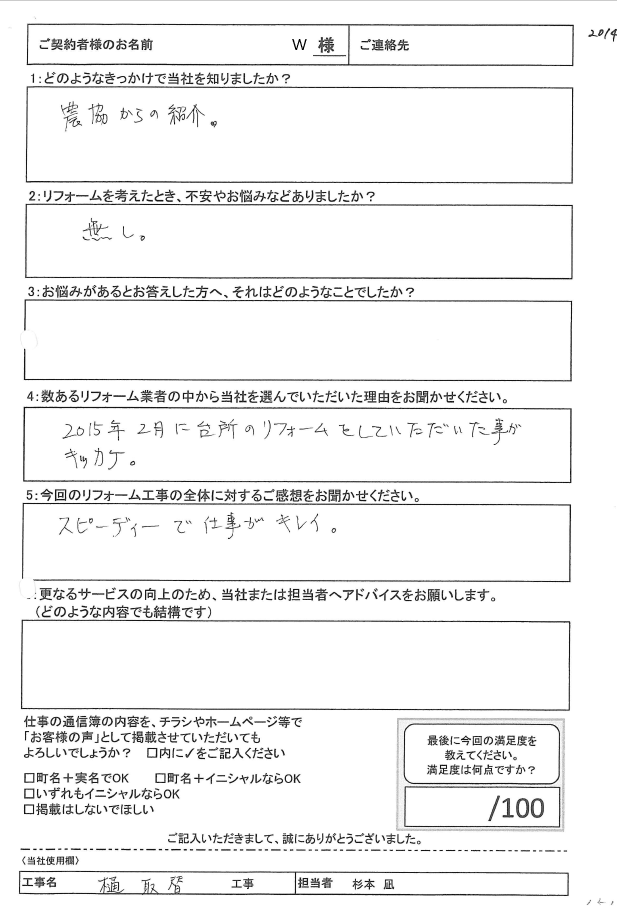 2014
ご契約者様のお名前 W 様 ご連絡先
1:どのようなきっかけで当社を知りましたか?
農協からの紹介。
2:リフォームを考えたとき、不安やお悩みなどありましたか?
無し。
3:お悩みがあるとお答えした方へ、それはどのようなことでしたか?
4:数あるリフォーム業者の中から当社を選んでいただいた理由をお聞かせください。
2015年2月に台所のリフォームをしていただいた事が
キッカケ。
5:今回のリフォーム工事の全体に対するご感想をお聞かせください。
スピーディーで仕事がキレイ。
:更なるサービスの向上のため、当社または担当者へアドバイスをお願いします。
(どのような内容でも結構です)
仕事の通信簿の内容を、チラシやホームページ等で
「お客様の声」として掲載させていただいても
よろしいでしょうか? □内に✓をご記入ください
□町名+実名でOK □町名+イニシャルならOK
□いずれもイニシャルならOK
□掲載はしないでほしい
最後に今回の満足度を
教えてください。
満足度は何点ですか?
/100
ご記入いただきまして、誠にありがとうございました。
〈当社使用欄〉
工事名 樋取替 工事 担当者 杉本 凪